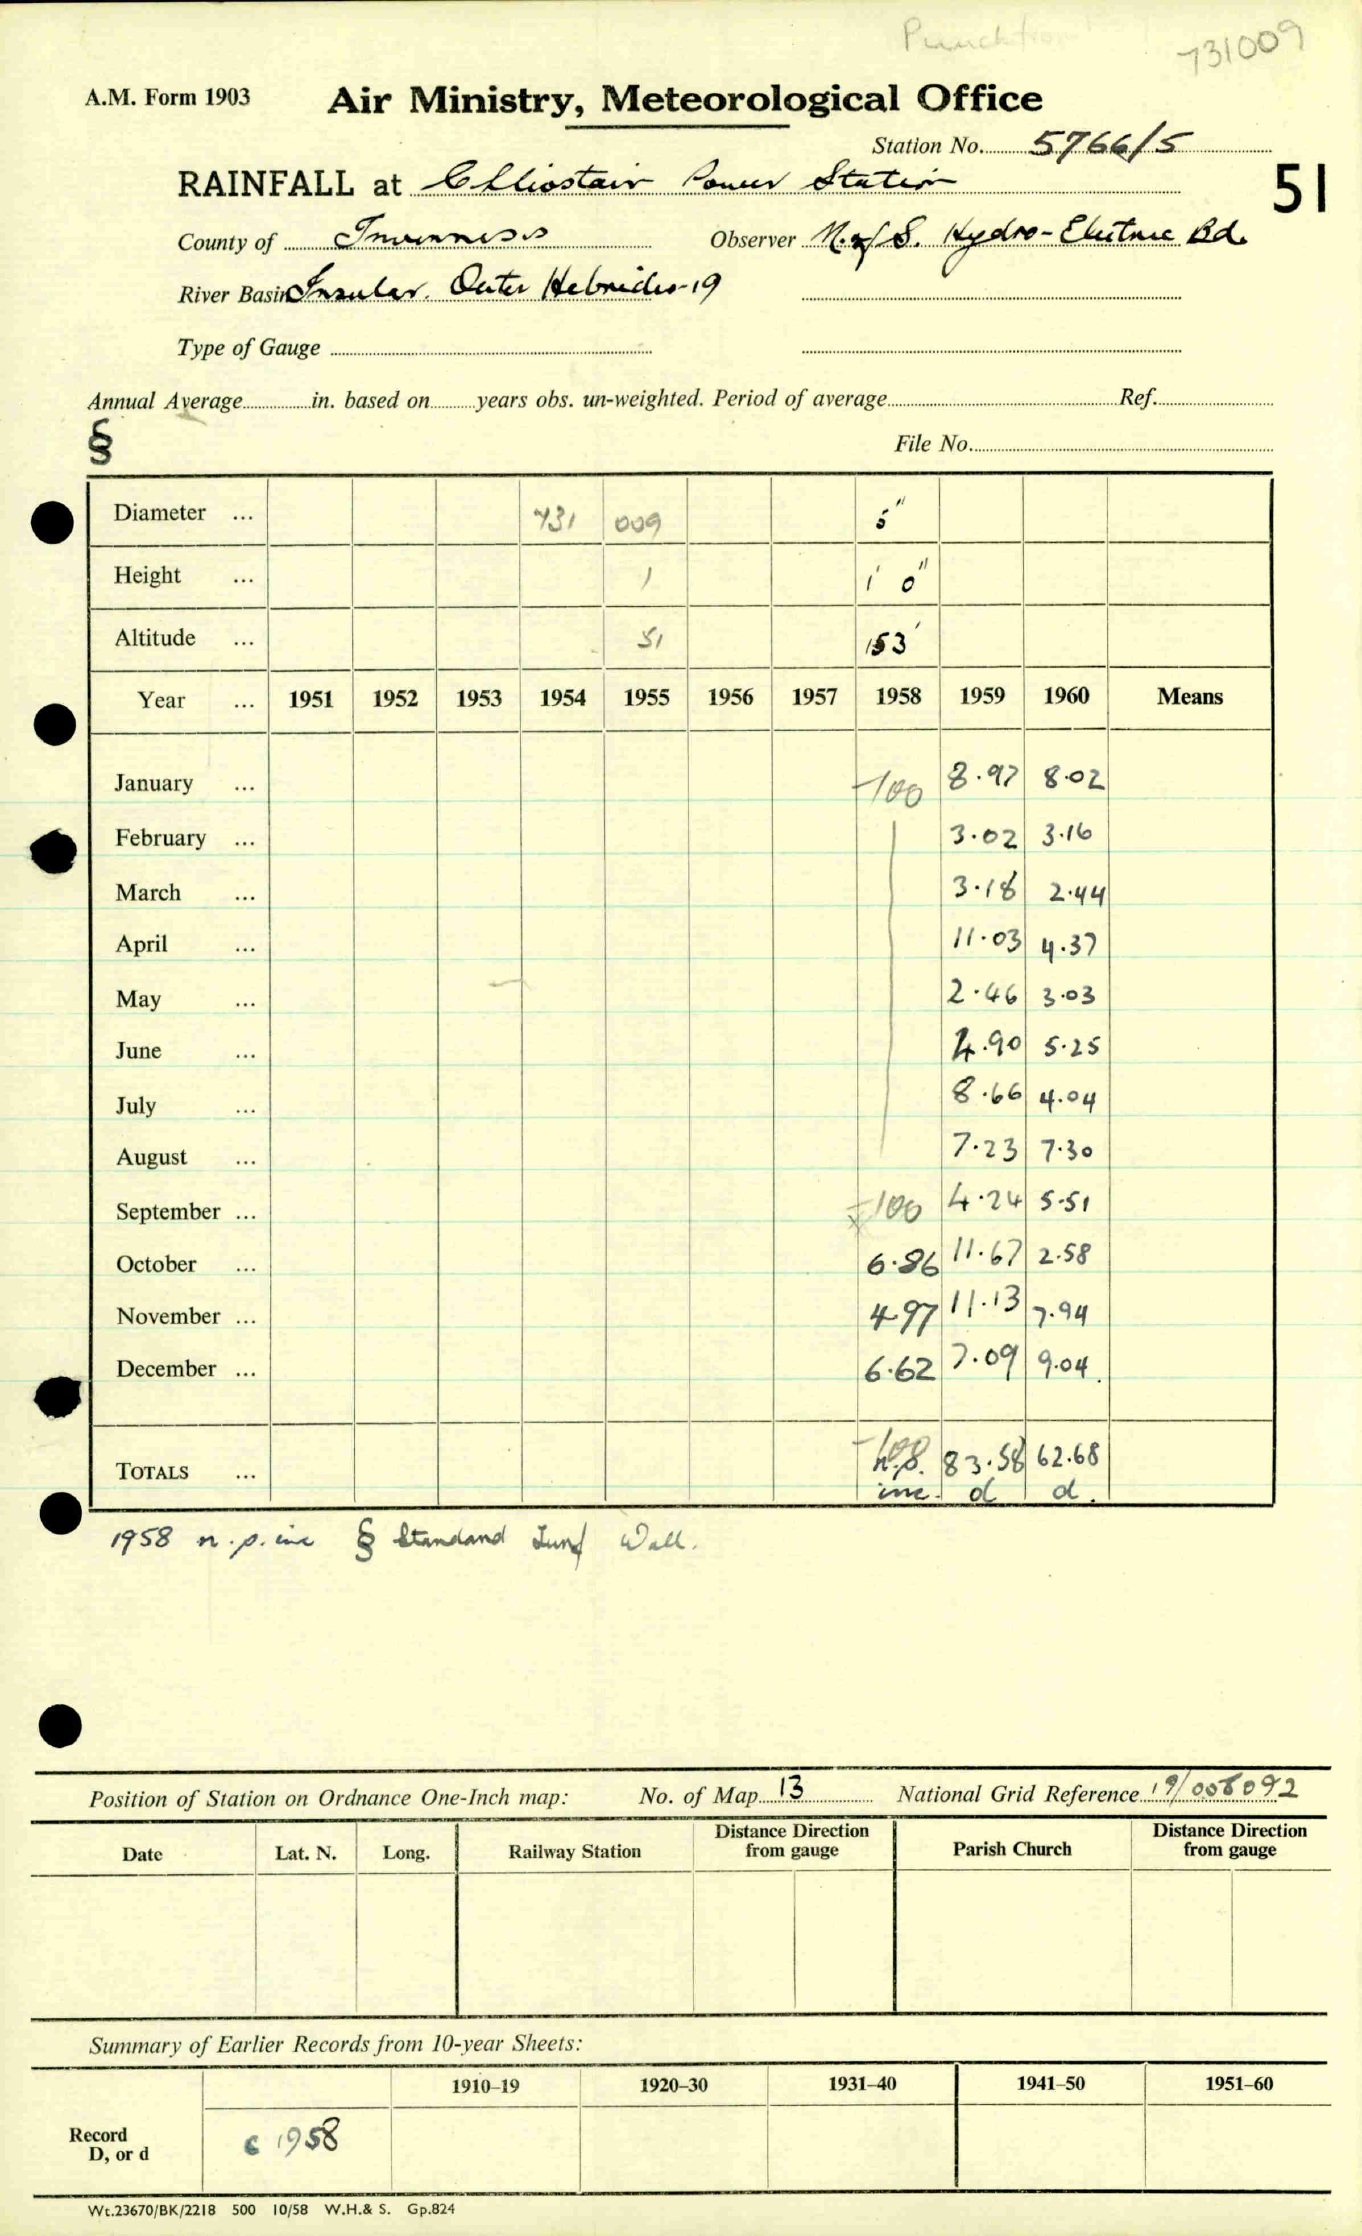 731009
A.M. Form 1903
Air Ministry, Meteorological Office
Station No. 5766/5
RAINFALL at Chliostair Power Station
51
County of Inverness Observer N. of S. Hydro-Electric Bd.
River Basin Insular. Outer Hebrides-19
Type of Gauge
Annual Average in. based on years obs. un-weighted. Period of average Ref.
§
File No.
Diameter ... 731 009 5"
Height ... 1 1' 0"
Altitude ... 51 153'
Year ... 1951 1952 1953 1954 1955 1956 1957 1958 1959 1960 Means
January ... -100 8.97 8.02
February ... 3.02 3.16
March ... 3.18 2.44
April ... 11.03 4.37
May ... 2.46 3.03
June ... 4.90 5.25
July ... 8.66 4.04
August ... 7.23 7.30
September ... -100 4.24 5.51
October ... 6.86 11.67 2.58
November ... 4.97 11.13 7.94
December ... 6.62 7.09 9.04
TOTALS ... -100 n.p. 83.58 62.68
inc. d d.
1958 n.p. inc § Standard Turf Wall.
Position of Station on Ordnance One-Inch map: No. of Map 13 National Grid Reference 19/008092
Date Lat. N. Long. Railway Station Distance Direction from gauge Parish Church Distance Direction from gauge
Summary of Earlier Records from 10-year Sheets:
1910–19 1920–30 1931–40 1941–50 1951–60
Record
D, or d
c 1958
Wt.23670/BK/2218 500 10/58 W.H.& S. Gp.824